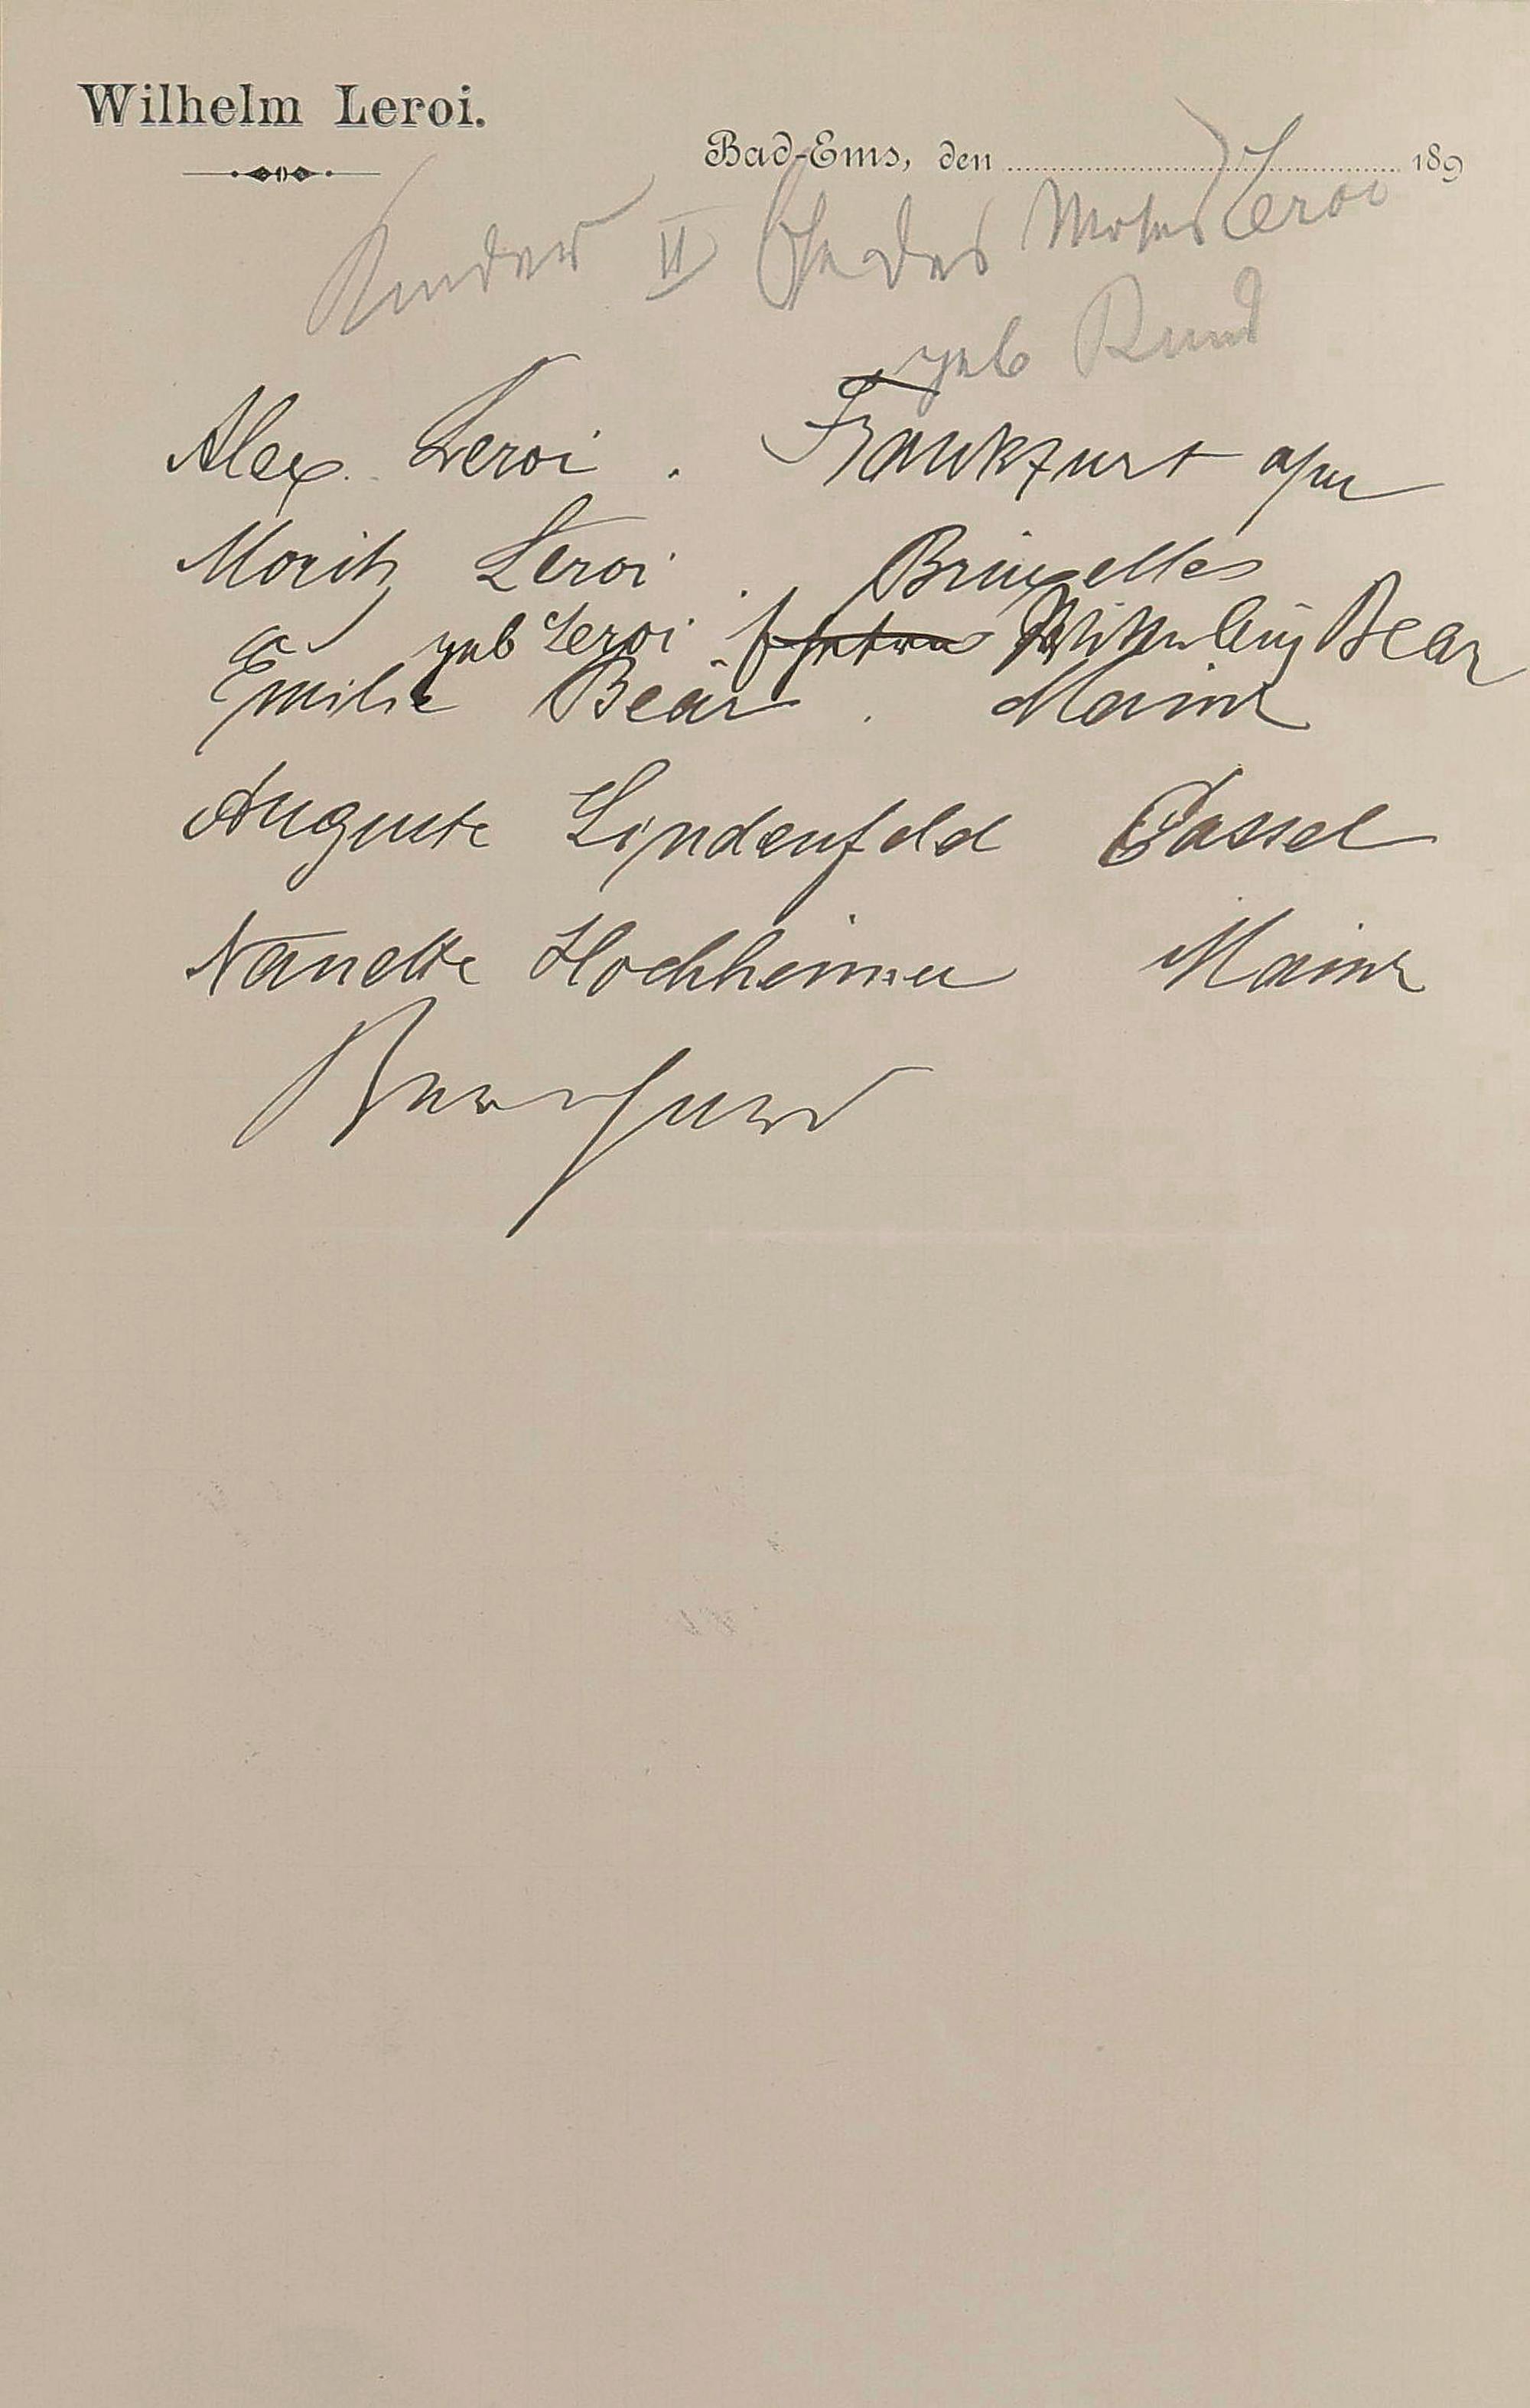 Wilhelm Leroi.
Bad-Ems, den 189
Kinder II Ehe des Moses Leroi
geb Rund
Alex. Leroi. Frankfurt a/m
Moritz Leroi. Bruxelles
geb Leroi Bear
Emilie Bear. Mainz
Auguste Lindenfeld Cassel
Nanette Hochheimer Mainz